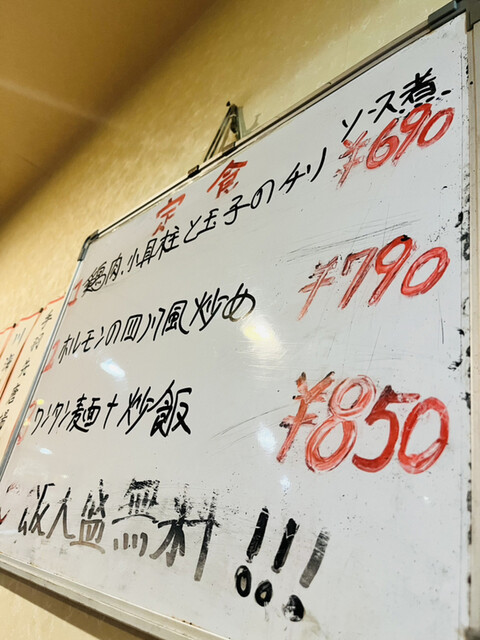 定食
1 鶏肉、小貝柱と玉子のチリソース煮 ¥690
2 ホルモンの四川風炒め ¥790
3 ワンタン麺+炒飯 ¥850
ご飯大盛無料!!!